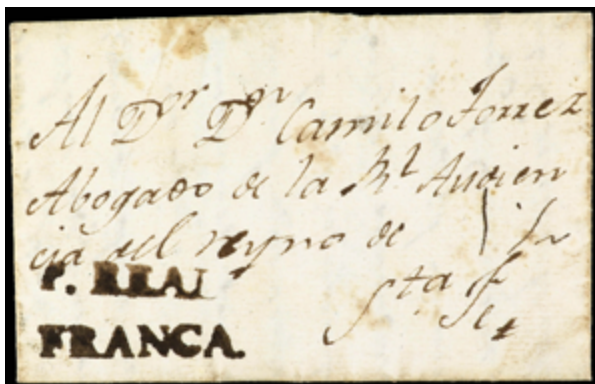 Al D.or D.n Camilo Torrez
Abogado de la Rl Audien
cia del reyno de
Sta fe
P. REAL
FRANCA.